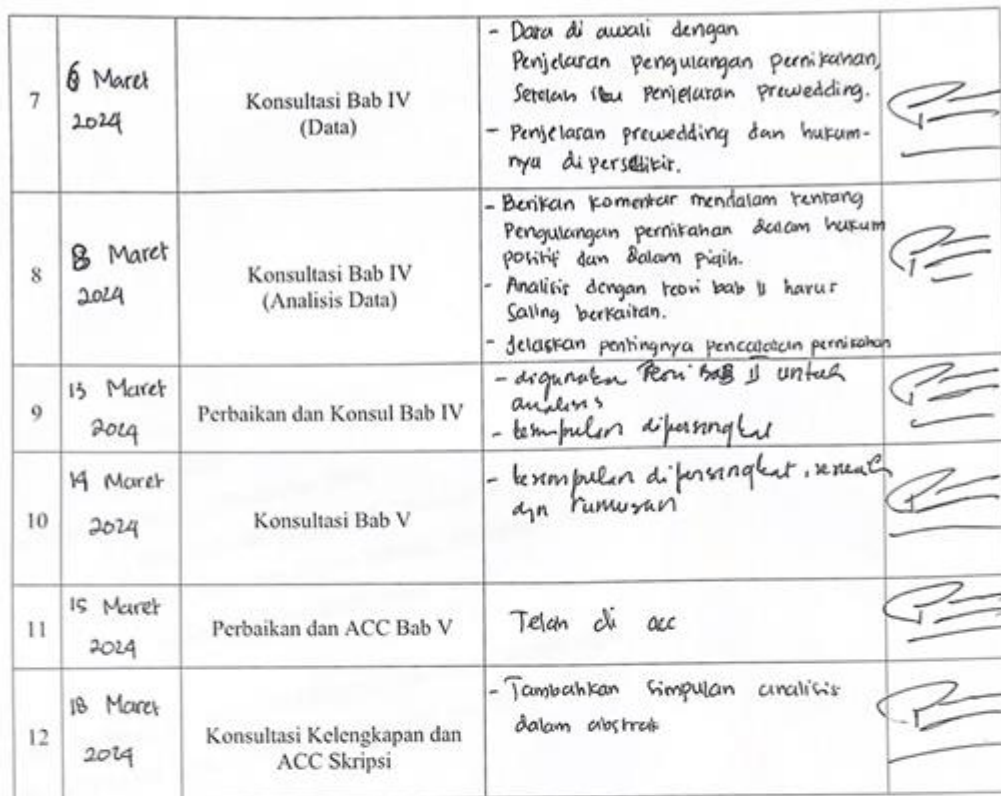 7
6 Maret
2024
Konsultasi Bab IV
(Data)
- Data di awali dengan
Penjelasan pengulangan pernikahan,
Setelah itu penjelasan prewedding.
- Penjelasan prewedding dan hukum-
nya di persedikit.
8
8 Maret
2024
Konsultasi Bab IV
(Analisis Data)
- Berikan komentar mendalam tentang
Pengulangan pernikahan dalam hukum
positif dan dalam fiqih.
- Analisis dengan teori bab II harus
Saling berkaitan.
- Jelaskan pentingnya pencatatan pernikahan
9
13 Maret
2024
Perbaikan dan Konsul Bab IV
- digunakan Teori BAB II untuk
analisis
- kesimpulan dipersingkat
10
14 Maret
2024
Konsultasi Bab V
- kesimpulan dipersingkat, sesuai
dgn rumusan
11
15 Maret
2024
Perbaikan dan ACC Bab V
Telah di acc
12
18 Maret
2024
Konsultasi Kelengkapan dan
ACC Skripsi
- Tambahkan simpulan analisis
dalam abstrak